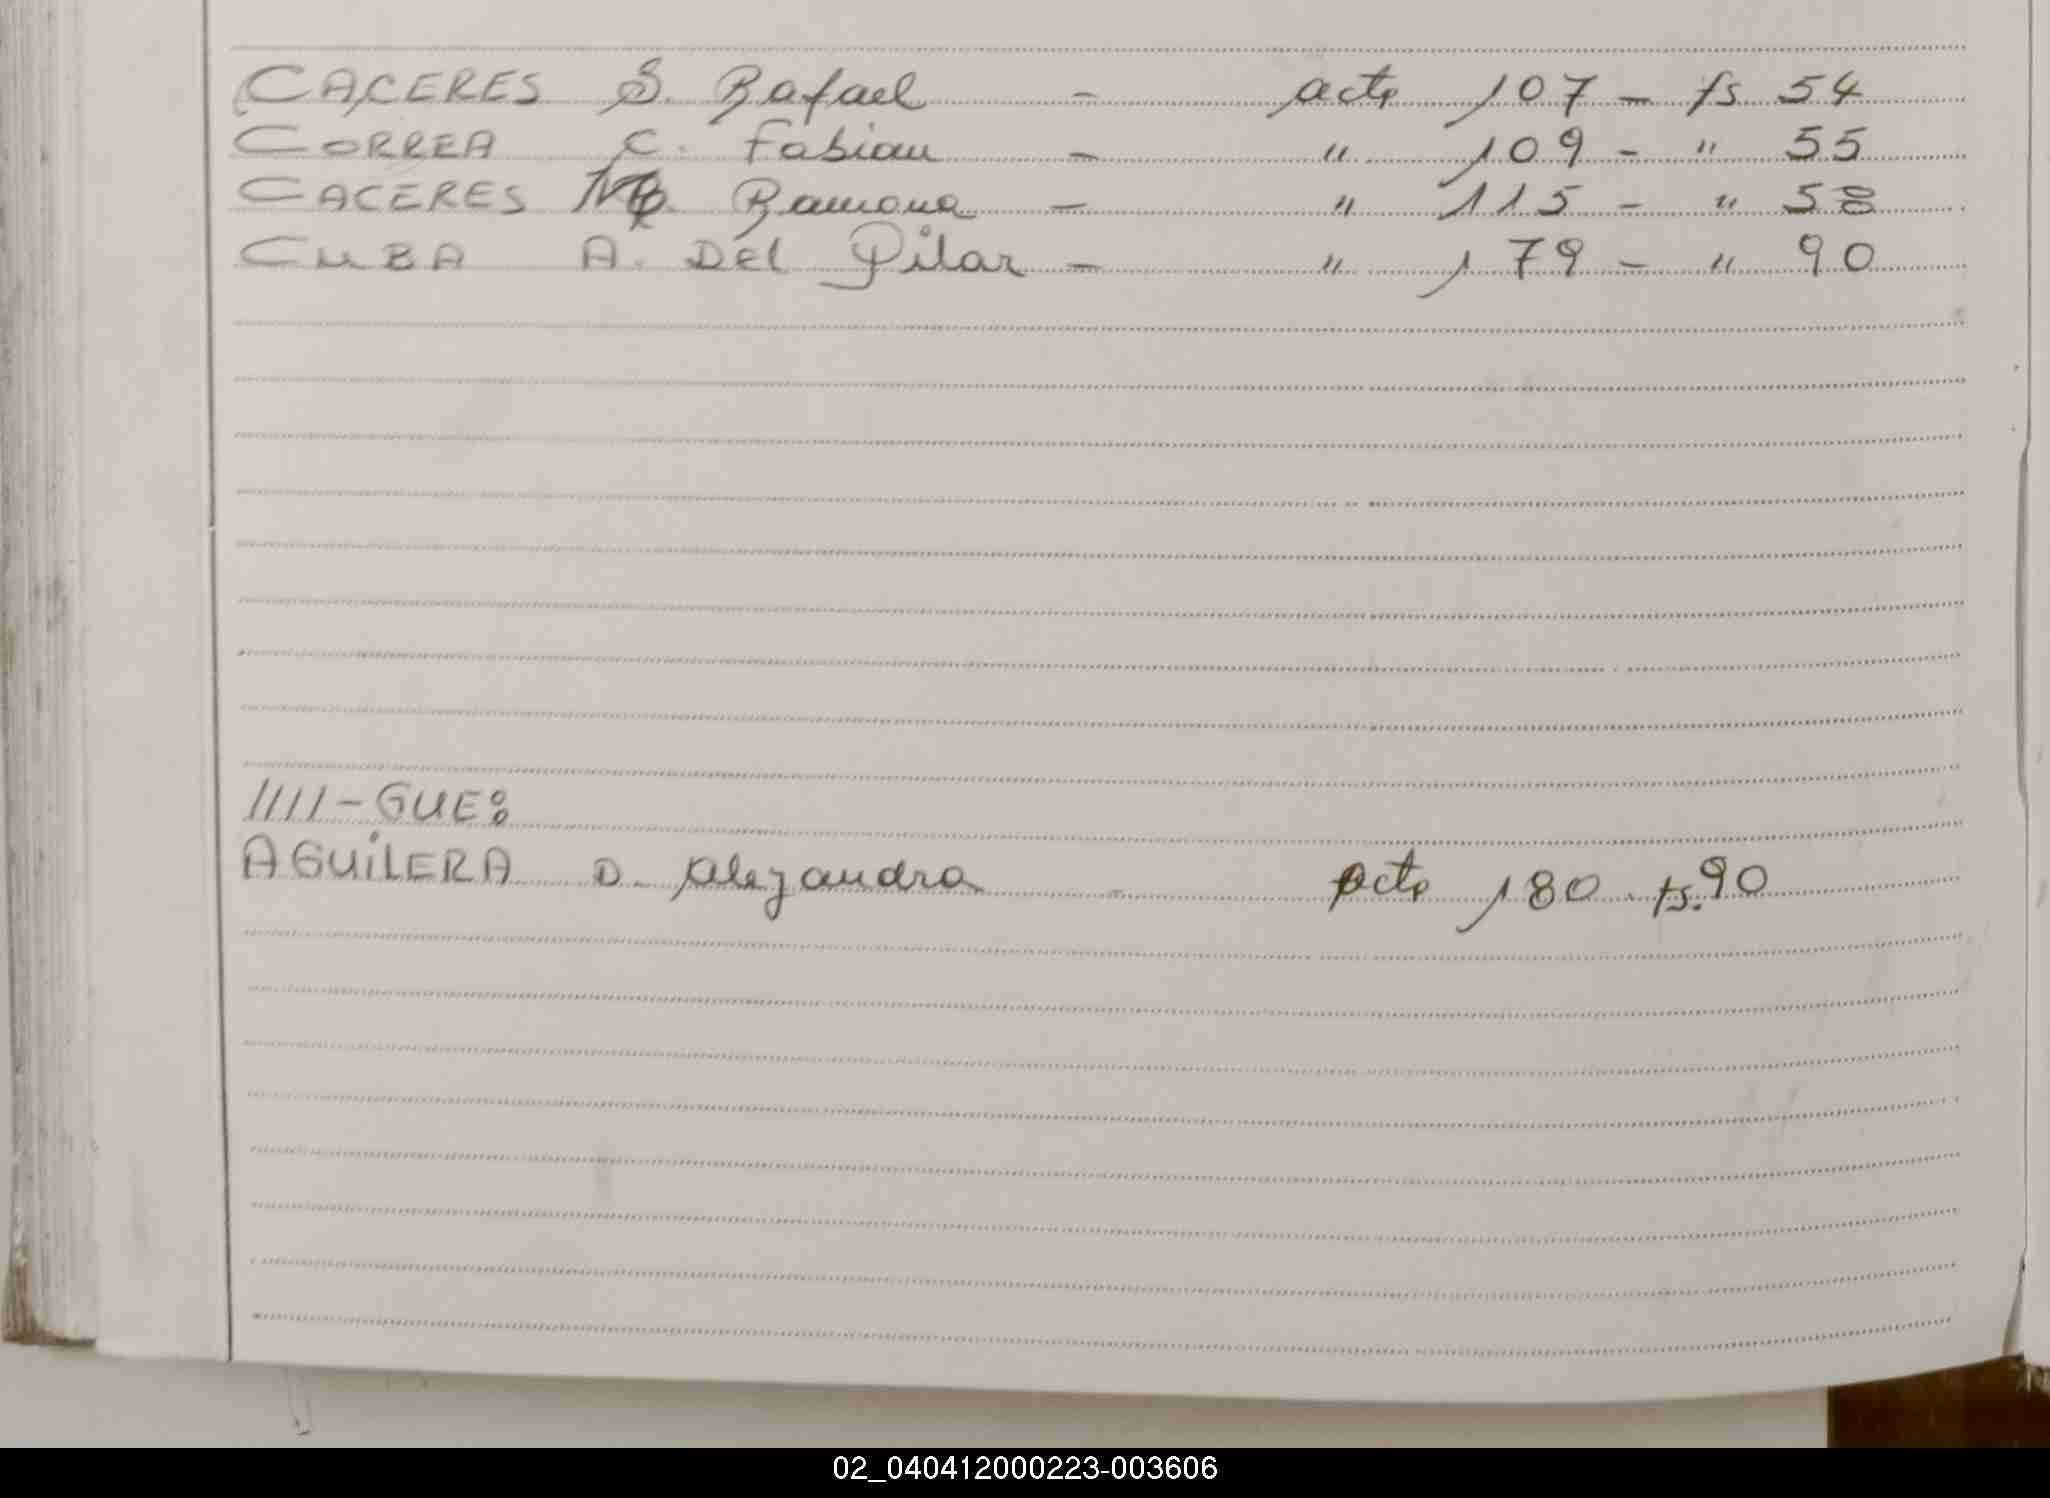 CACERES S. Rafael - acta 107 - fs 54
CORREA C. Fabian - " 109 - " 55
CACERES Ramona - " 115 - " 58
CUBA A. Del Pilar - " 179 - " 90
1111-GUE:
AGUILERA D. Alejandra - acta 180 . fs. 90
02_040412000223-003606